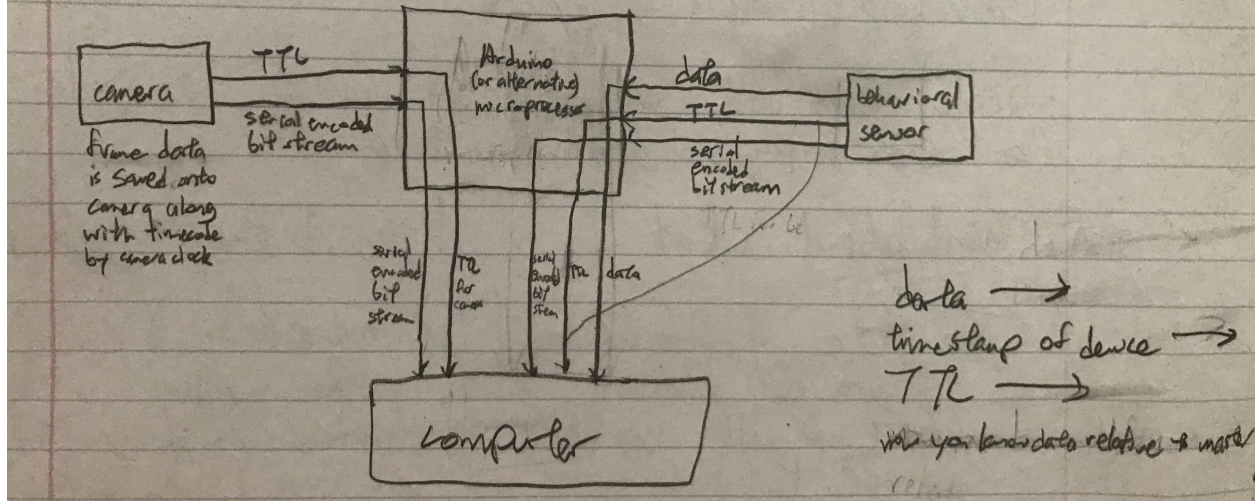 camera
TTL
serial encoded
bit stream
frame data
is saved onto
camera along
with timecode
by camera clock
Arduino
(or alternative)
microprocessor
data
TTL
serial
encoded
bit stream
behavioral
sensor
serial
encoded
bit
stream
TTL
for
camera
serial
encoded
bit
stream
TTL
data
computer
data
timestamp of device
TTL
now you know data relative to